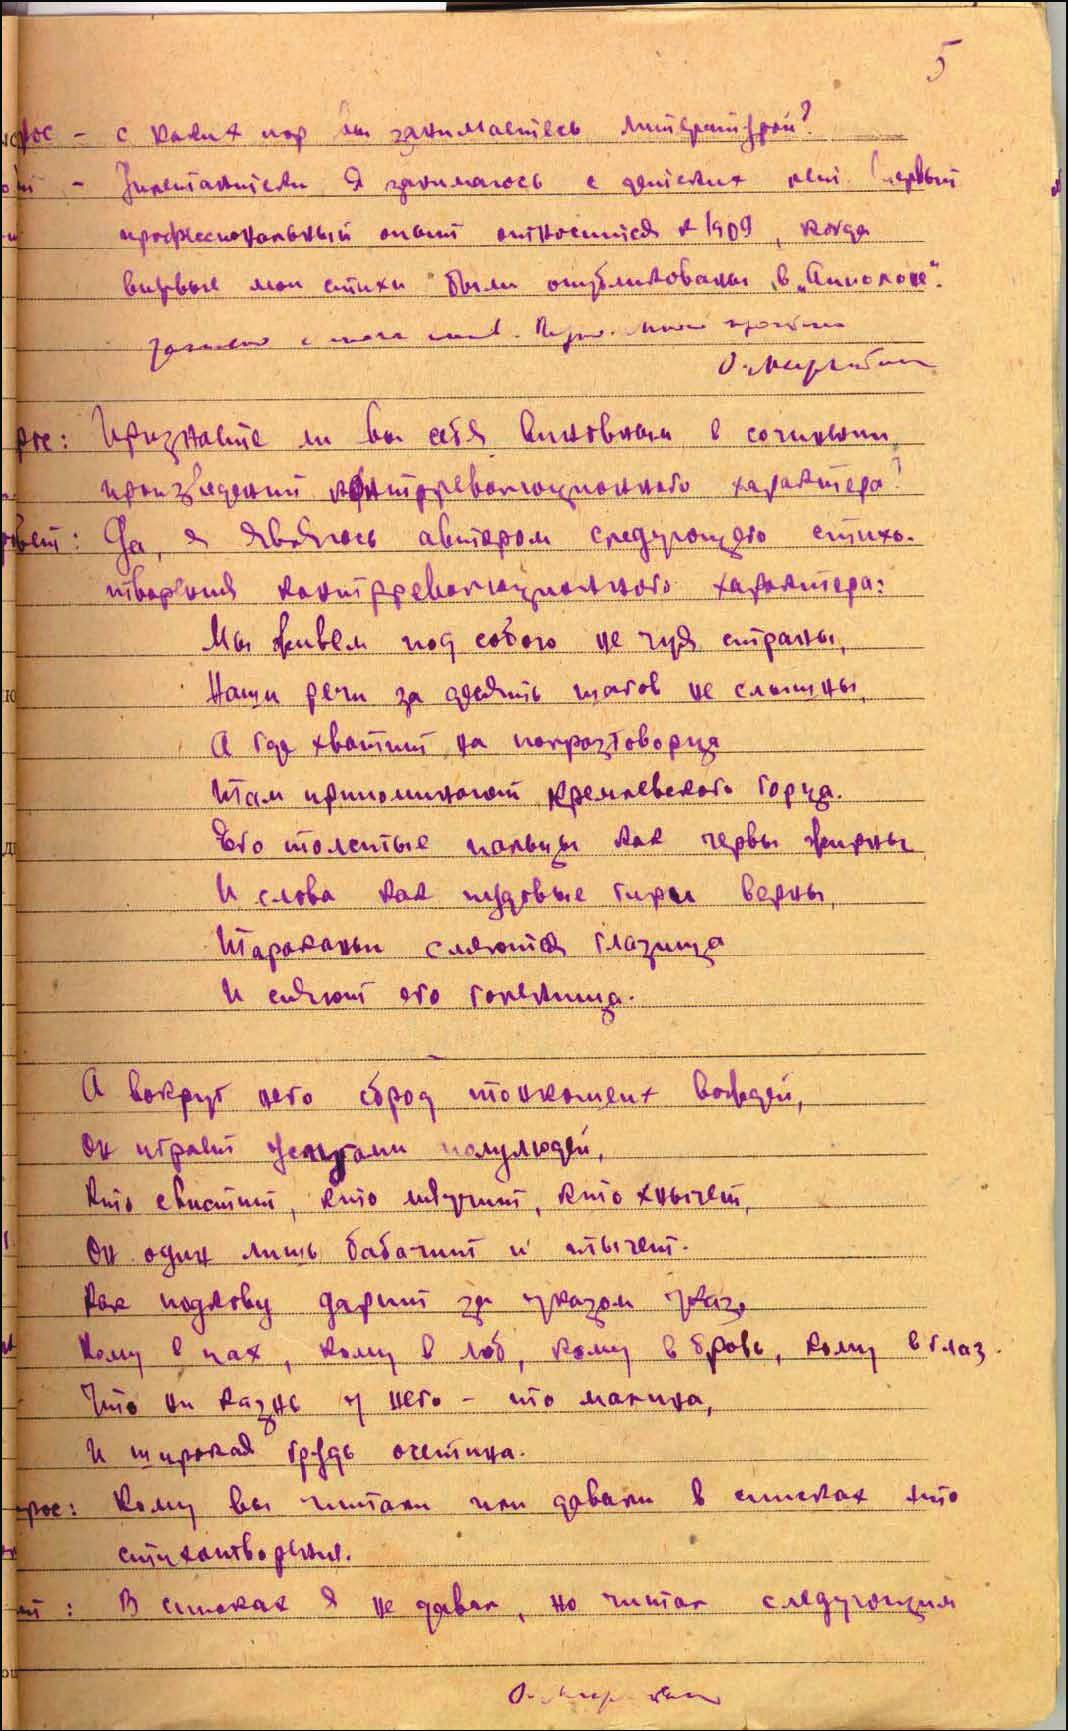 5
рос – с каких пор вы занимаетесь литературой?
– Писательством я занимаюсь с детских лет. Первый
профессиональный опыт относится к 1909, когда
впервые мои стихи были опубликованы в „Апполоне“.
Записано с моих слов.
О. Мандельштам
рос: Признаете ли вы себя виновным в сочинении
произведений контрреволюционного характера?
ответ: Да, я являюсь автором следующего стихо-
творения контрреволюционного характера:
Мы живем под собою не чуя страны,
Наши речи за десять шагов не слышны,
А где хватит на полразговорца
Там припоминают кремлевского горца.
Его толстые пальцы как червы жирны
И слова как пудовые гири верны,
Тараканьи смеются глазища
И сияют его голенища.
А вокруг него сброд тонкошеих вождей,
Он играет услугами полулюдей,
Кто свистит, кто мяучит, кто хнычет,
Он один лишь бабачит и тычет.
Как подкову дарит за указом указ,
Кому в пах, кому в лоб, кому в бровь, кому в глаз.
Что ни казнь у него – то малина,
И широкая грудь осетина.
прос: Кому вы читали или давали в списках это
стихотворение.
ет: В списках я не давал, но читал следующим
О. Мандельштам